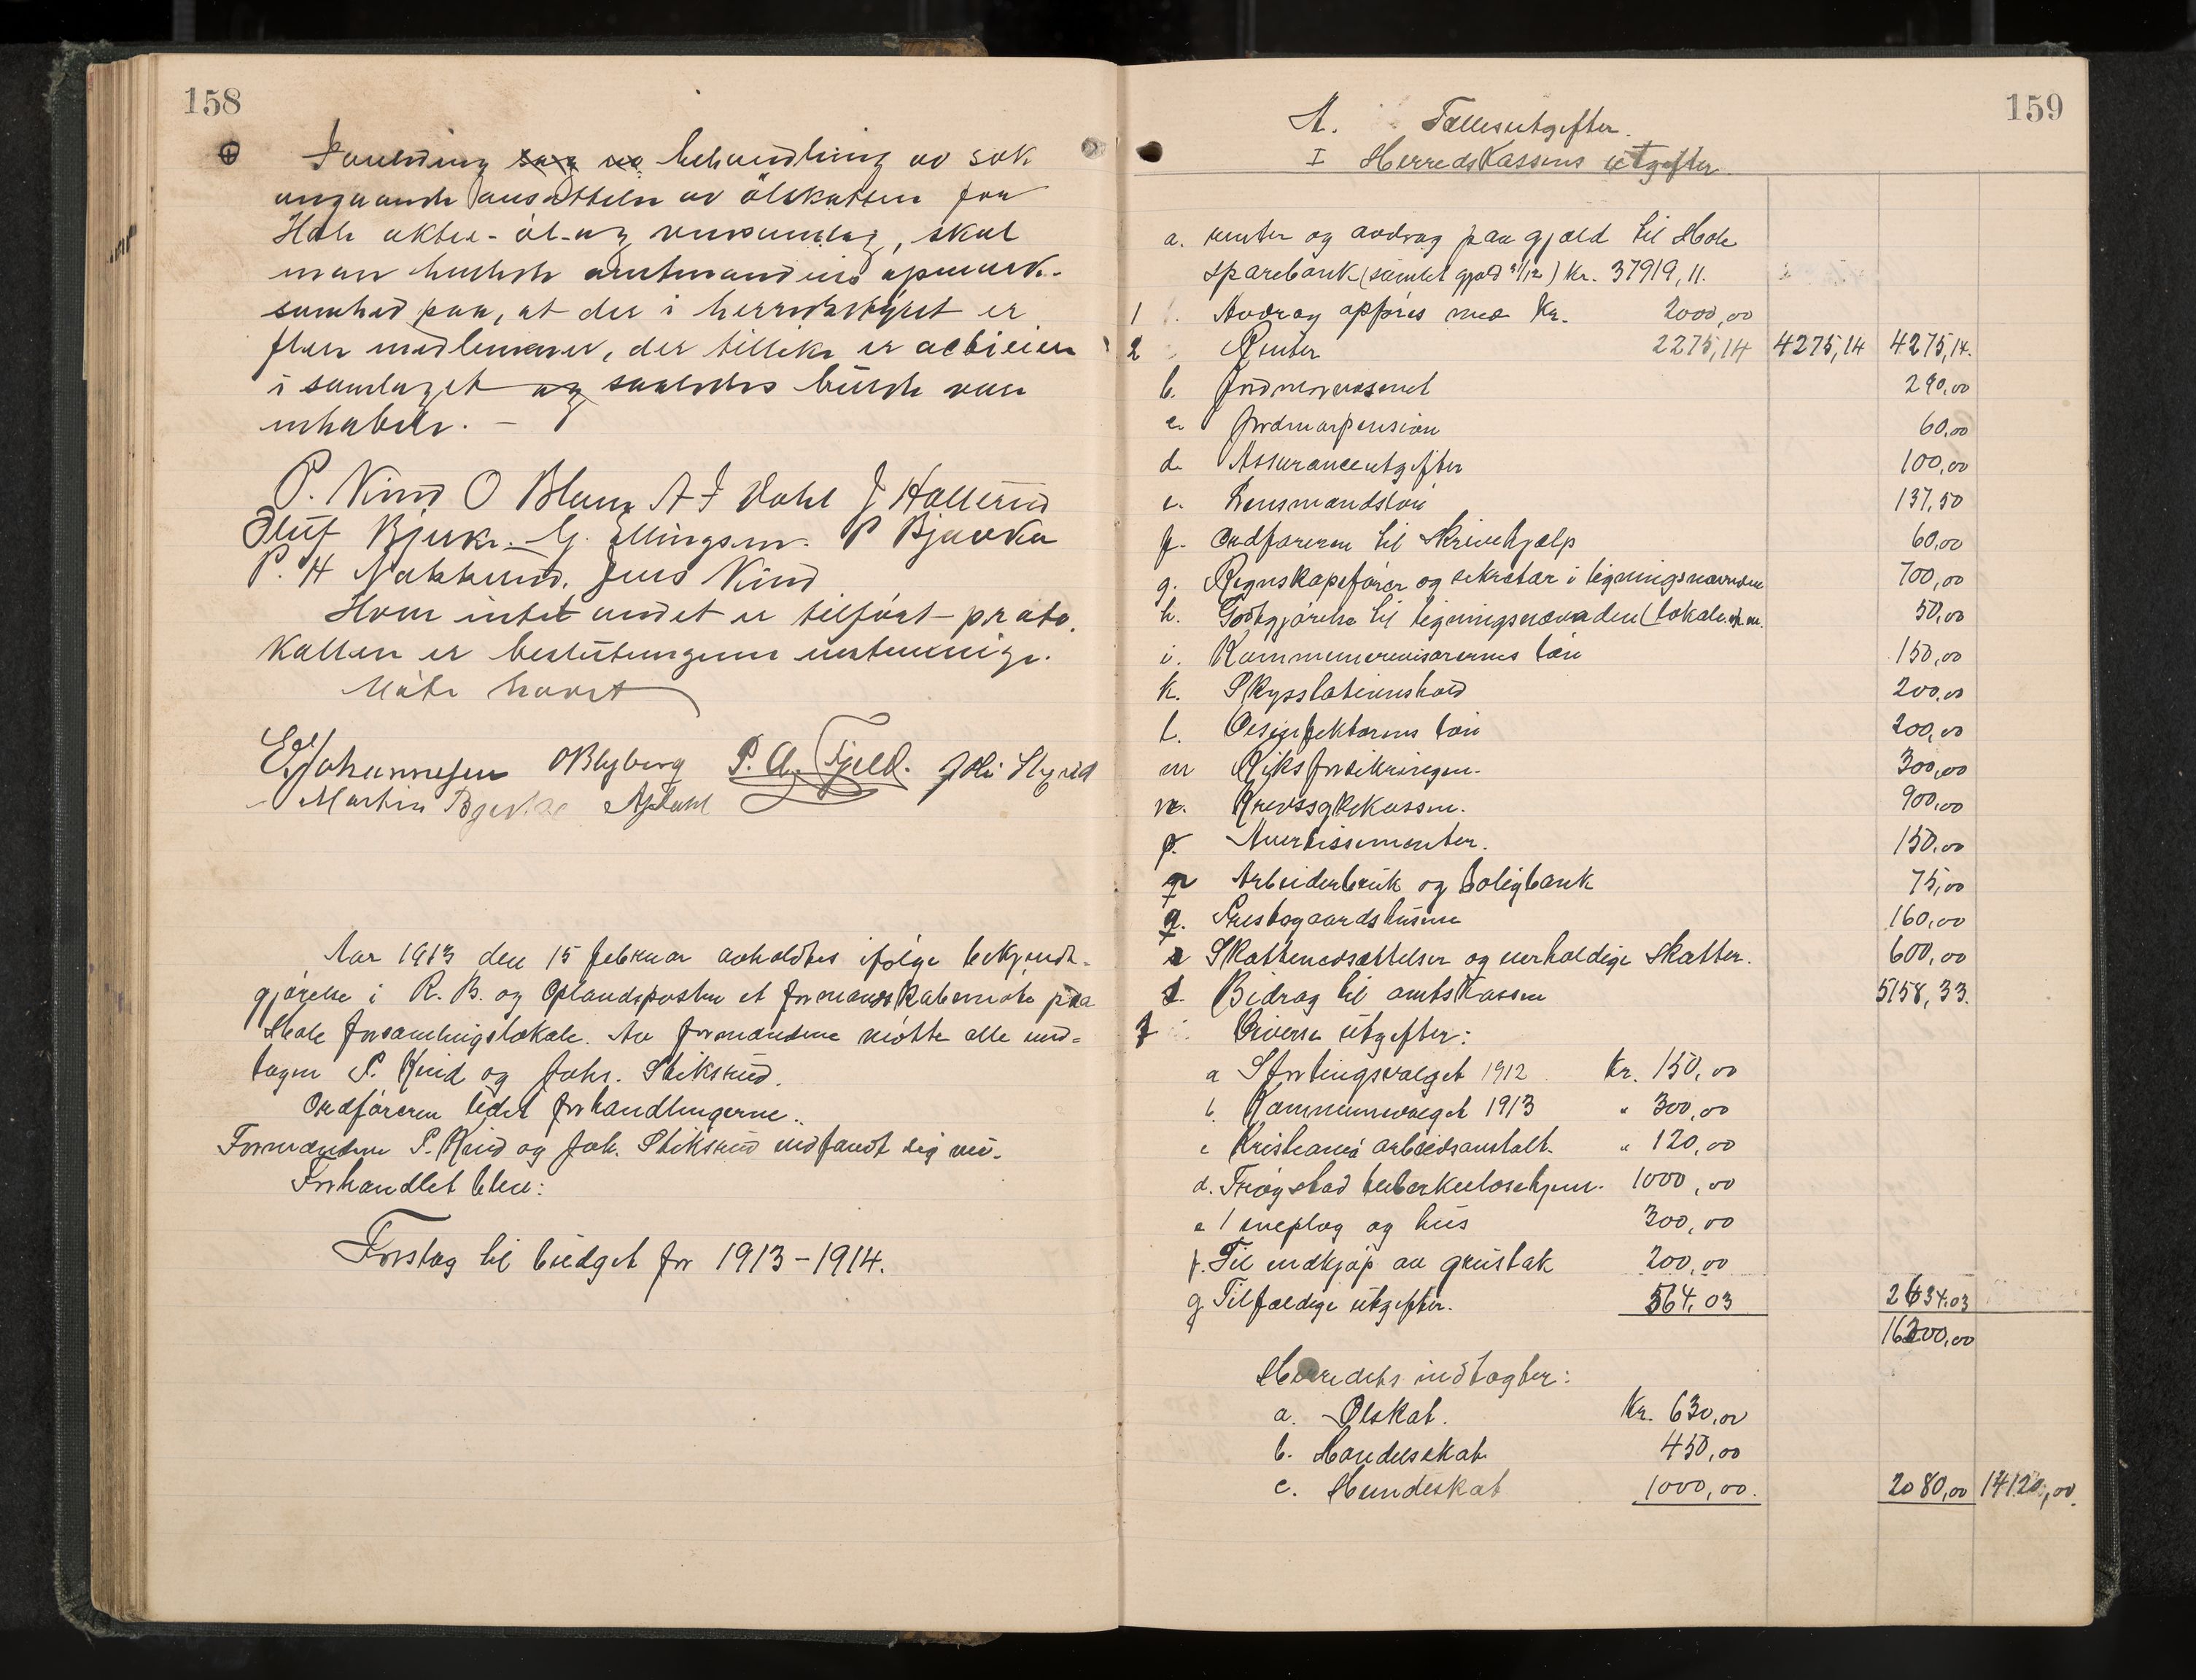 158
behandling av sak
angaaende ansættelse av ölskatten for
Hole aktie-öl-og vinsamlag, skal
man henlede amtmandens opmerk-
somhed paa, at der i herredsstyret er
flere medlemmer, der tillike er actieiere
i samlaget og saaledes burde være
inhabile. -
P. Kind O Blum A J Dahl J Hallerud
Oluf Bjerke. G. Ellingsen. P Bjerke
P. H Nakkerud. Jens Kind
Hvor intet andet er tilført proto-
kollen er beslutningerne enstemmige.
Møte hævet
E. Johannesen O Blyberg P. A. Fjeld.
Martin A J Dahl
Aar 1913 den 15 februar avholdtes ifølge bekjendt-
gjørelse i R. B. og Oplandsposten et formandskabsmøte paa
Hole forsamlingslokale. Av formændene møtte alle und-
tagen P. Kind og Johs. Stiksrud.
Ordføreren ledet forhandlingerne.
Formændene P. Kind og Joh. Stiksrud indfandt sig nu.
Forhandlet blev:
Forslag til budget for 1913-1914.
159
A. Fællesutgifter.
I Herredskassens utgifter.
a. renter og avdrag paa gjæld til Hole
sparebank (samlet gjæld 31/12) kr. 37919,11.
1 Avdrag opføres med kr. 2000,00
2 Renter 2275,14 4275,14 4275,14.
b. Jordmorvæsenet 290,00
c. Jordmorpension 60,00
d. Assuranceutgifter 100,00
e. Lensmandsløn 137,50
f. Ordføreren til skrivehjælp 60,00
g. Regnskapsfører og sekretær i ligningsnævnden 700,00
h. Godtgjørelse til ligningsnævnden (lokale m. m. 50,00
i. Kommunerevisorernes løn 150,00
k. Skysstationshold 200,00
l. Desinfektørens løn 200,00
m Riksforsikringen. 300,00
n. Kredssykekassen. 900,00
p. Avertissementer. 150,00
Arbeiderbruk og boligbank 75,00
q. Prestegaardshusene 160,00
r Skattenedsættelser og uerholdige skatter. 600,00
s. Bidrag til amtskassen 5158,33.
Diverse utgifter:
a Stortingsvalget 1912 Kr. 150,00
b. Kommunevalget 1913 " 300,00
c Kristiania arbeidsanstalt. " 120,00
d. Trøgstad tuberkulosehjem. 1000,00
e 1 sneplog og hus 300,00
f. Til indkjøp av grustak 200,00
g Tilfældige utgifter. 564,03 2634,03
16200,00
Herredets indtægter:
a. Ølskat. Kr. 630,00
b. Handelsskat 450,00
c. Hundeskat 1000,00. 2080,00 14120,00.